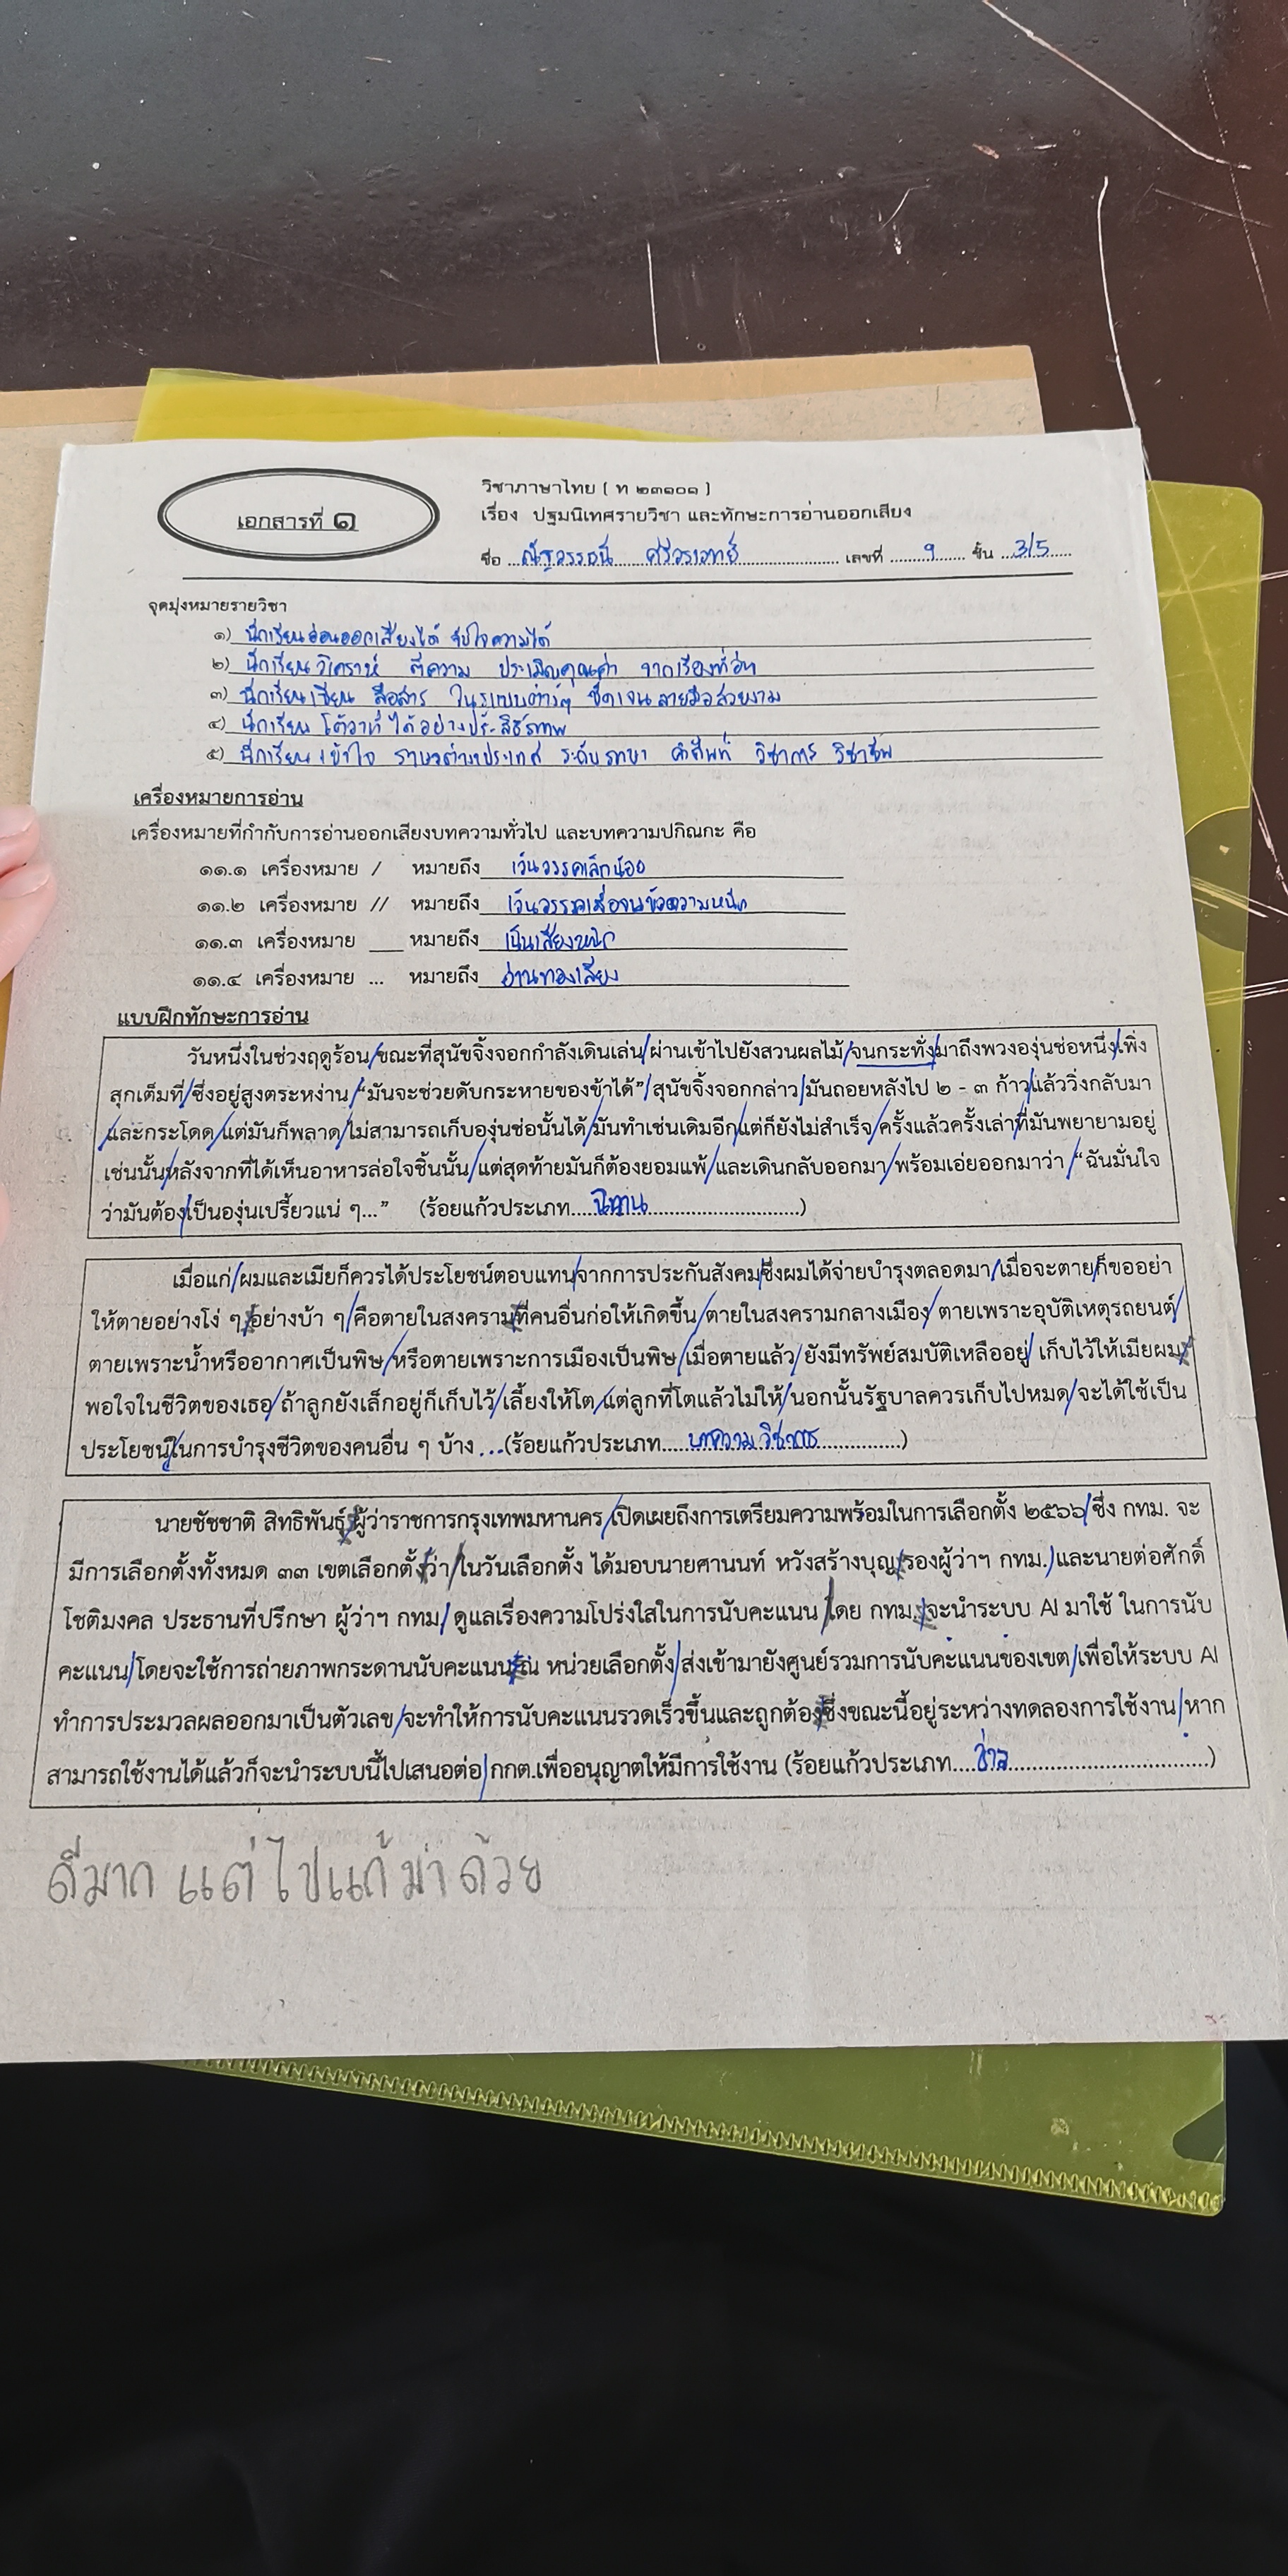 เอกสารที่ ๑
วิชาภาษาไทย ( ท ๒๓๑๐๑ )
เรื่อง ปฐมนิเทศรายวิชา และทักษะการอ่านออกเสียง
ชื่อ ณัฐวรรธน์ ศรีวรเวทย์ เลขที่ 9 ชั้น 3/5
จุดมุ่งหมายรายวิชา
๑) นักเรียนอ่านออกเสียงได้ จับใจความได้
๒) นักเรียนวิเคราะห์ ตีความ ประเมินคุณค่า จากเรื่องที่อ่าน
๓) นักเรียนเขียน สื่อสาร ในรูปแบบต่างๆ ชัดเจน ลายมือสวยงาม
๔) นักเรียน โต้วาที ได้อย่างประสิธิภาพ
๕) นักเรียน เข้าใจ ภาษาต่างประเทศ ระดับภาษา คำศัพท์ วิชาการ วิชาชีพ
เครื่องหมายการอ่าน
เครื่องหมายที่กำกับการอ่านออกเสียงบทความทั่วไป และบทความปกิณกะ คือ
๑๑.๑ เครื่องหมาย / หมายถึง เว้นวรรคเล็กน้อย
๑๑.๒ เครื่องหมาย // หมายถึง เว้นวรรคเมื่อจบข้อความหนึ่ง
๑๑.๓ เครื่องหมาย ___ หมายถึง เน้นเสียงหนัก
๑๑.๔ เครื่องหมาย ... หมายถึง อ่านทอดเสียง
แบบฝึกทักษะการอ่าน
วันหนึ่งในช่วงฤดูร้อน/ขณะที่สุนัขจิ้งจอกกำลังเดินเล่น/ผ่านเข้าไปยังสวนผลไม้/จนกระทั่ง/มาถึงพวงองุ่นช่อหนึ่ง/เพิ่ง
สุกเต็มที่/ซึ่งอยู่สูงตระหง่าน/“มันจะช่วยดับกระหายของข้าได้”/สุนัขจิ้งจอกกล่าว/มันถอยหลังไป ๒ - ๓ ก้าว/แล้ววิ่งกลับมา
/และกระโดด/แต่มันก็พลาด/ไม่สามารถเก็บองุ่นช่อนั้นได้/มันทำเช่นเดิมอีก/แต่ก็ยังไม่สำเร็จ/ครั้งแล้วครั้งเล่า/ที่มันพยายามอยู่
เช่นนั้น/หลังจากที่ได้เห็นอาหารล่อใจชิ้นนั้น/แต่สุดท้ายมันก็ต้องยอมแพ้/และเดินกลับออกมา/พร้อมเอ่ยออกมาว่า/“ฉันมั่นใจ
ว่ามันต้อง/เป็นองุ่นเปรี้ยวแน่ ๆ...” (ร้อยแก้วประเภท....นิทาน....)
เมื่อแก่/ผมและเมียก็ควรได้ประโยชน์ตอบแทน/จากการประกันสังคม/ซึ่งผมได้จ่ายบำรุงตลอดมา/เมื่อจะตาย/ก็ขออย่า
ให้ตายอย่างโง่ ๆ อย่างบ้า ๆ/คือตายในสงครามที่คนอื่นก่อให้เกิดขึ้น/ตายในสงครามกลางเมือง/ตายเพราะอุบัติเหตุรถยนต์/
ตายเพราะน้ำหรืออากาศเป็นพิษ/หรือตายเพราะการเมืองเป็นพิษ/เมื่อตายแล้ว/ยังมีทรัพย์สมบัติเหลืออยู่/เก็บไว้ให้เมียผม
พอใจในชีวิตของเธอ/ถ้าลูกยังเล็กอยู่ก็เก็บไว้/เลี้ยงให้โต/แต่ลูกที่โตแล้วไม่ให้/นอกนั้นรัฐบาลควรเก็บไปหมด/จะได้ใช้เป็น
ประโยชน์/ในการบำรุงชีวิตของคนอื่น ๆ บ้าง ...(ร้อยแก้วประเภท....บทความ วิชาการ....)
นายชัชชาติ สิทธิพันธุ์ ผู้ว่าราชการกรุงเทพมหานคร/เปิดเผยถึงการเตรียมความพร้อมในการเลือกตั้ง ๒๕๖๖/ซึ่ง กทม. จะ
มีการเลือกตั้งทั้งหมด ๓๓ เขตเลือกตั้ง ว่า/ในวันเลือกตั้ง ได้มอบนายศานนท์ หวังสร้างบุญ รองผู้ว่าฯ กทม./และนายต่อศักดิ์
โชติมงคล ประธานที่ปรึกษา ผู้ว่าฯ กทม/ ดูแลเรื่องความโปร่งใสในการนับคะแนน/โดย กทม. จะนำระบบ AI มาใช้ ในการนับ
คะแนน/โดยจะใช้การถ่ายภาพกระดานนับคะแนน ณ หน่วยเลือกตั้ง/ส่งเข้ามายังศูนย์รวมการนับคะแนนของเขต/เพื่อให้ระบบ AI
ทำการประมวลผลออกมาเป็นตัวเลข/จะทำให้การนับคะแนนรวดเร็วขึ้นและถูกต้อง ซึ่งขณะนี้อยู่ระหว่างทดลองการใช้งาน/หาก
สามารถใช้งานได้แล้วก็จะนำระบบนี้ไปเสนอต่อ/กกต.เพื่ออนุญาตให้มีการใช้งาน (ร้อยแก้วประเภท....ข่าว....)
ดีมาก แต่ไปแก้มาด้วย